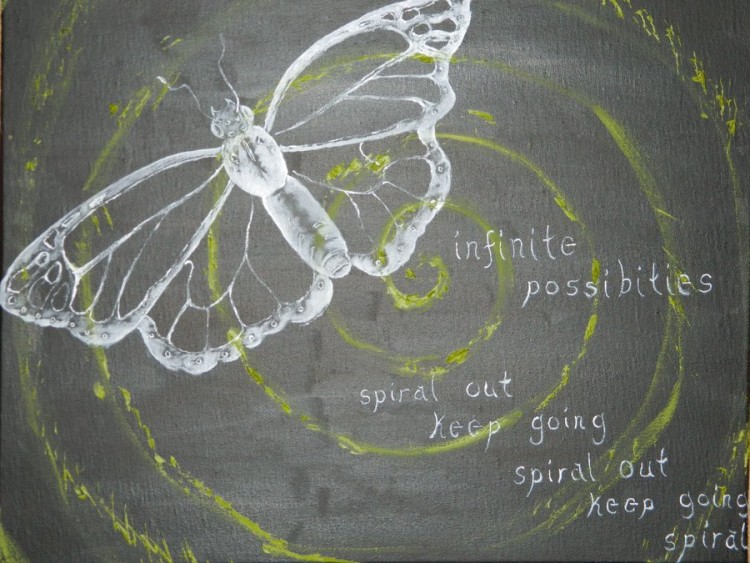 infinite
possibities
spiral out
keep going
spiral out
keep going
spiral